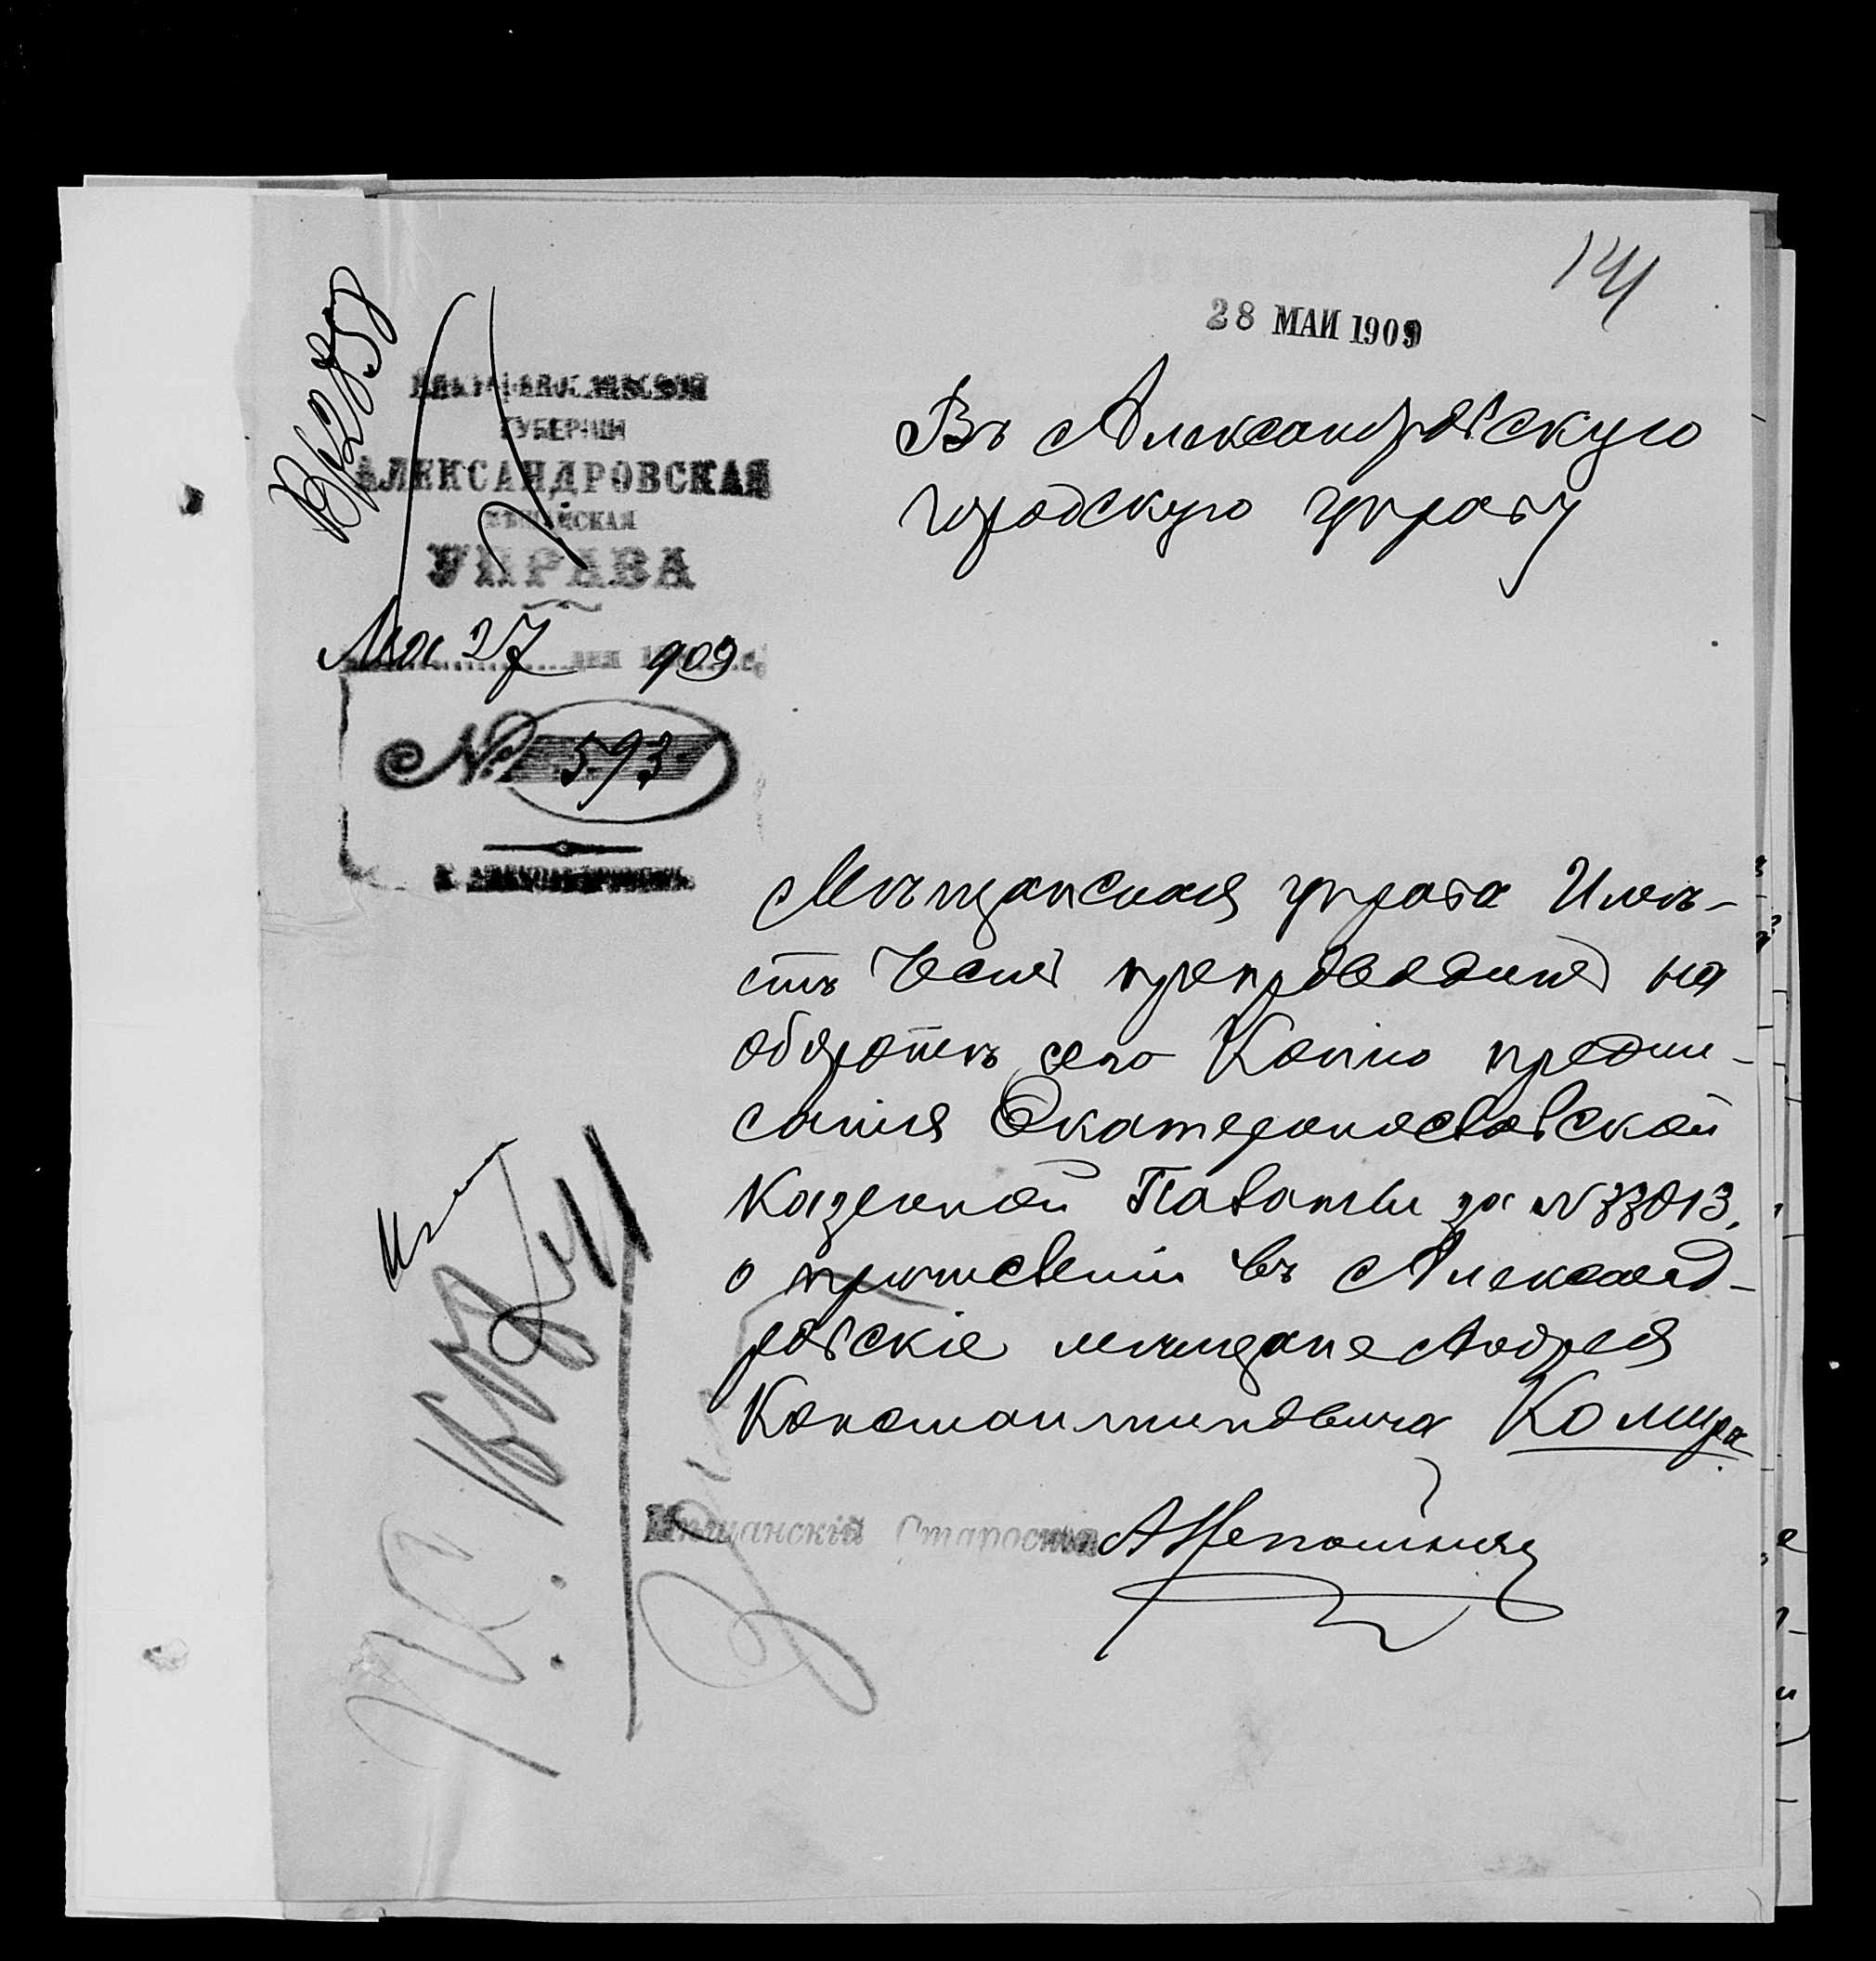 141
28 МАИ 1909
Вх 2858
ЕКАТЕРИНОСЛАВСКОЙ
ГУБЕРНІИ
АЛЕКСАНДРОВСКАЯ
МѢЩАНСКАЯ
УПРАВА
Мая 27 дня 1909 г.
№ 593
Г. АЛЕКСАНДРОВСКЪ
Въ Александровскую
городскую управу
Мѣщанская управа Имѣ-
етъ честь препроводить на
оборотѣ сего Копію предпи-
санія Екатеринославской
Казенной Палаты за №33013,
о причисленіи въ Александ-
ровскіе мѣщане Андрея
Константиновича Комира
Мѣщанскій Староста